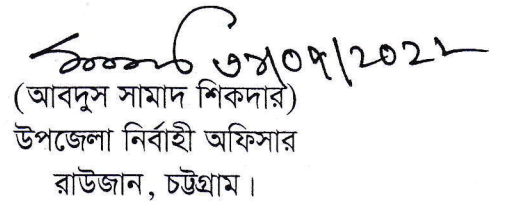 (আবদুস সামাদ শিকদার)
উপজেলা নির্বাহী অফিসার
রাউজান, চট্টগ্রাম।